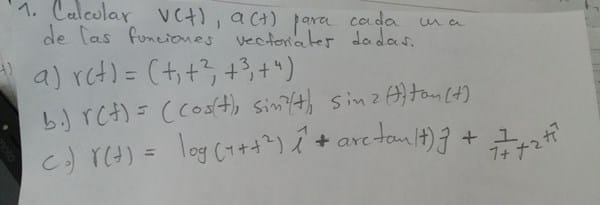 1. Calcular v(t), a(t) para cada una
de las funciones vectoriales dadas.
a) r(t) = (t, t², t³, t⁴)
b.) r(t) = (cos(t), sin²(t), sin 2(t), tan(t)
c.) r(t) = log(1+t²) î + arctan(t) ĵ + 1/1+t² k̂